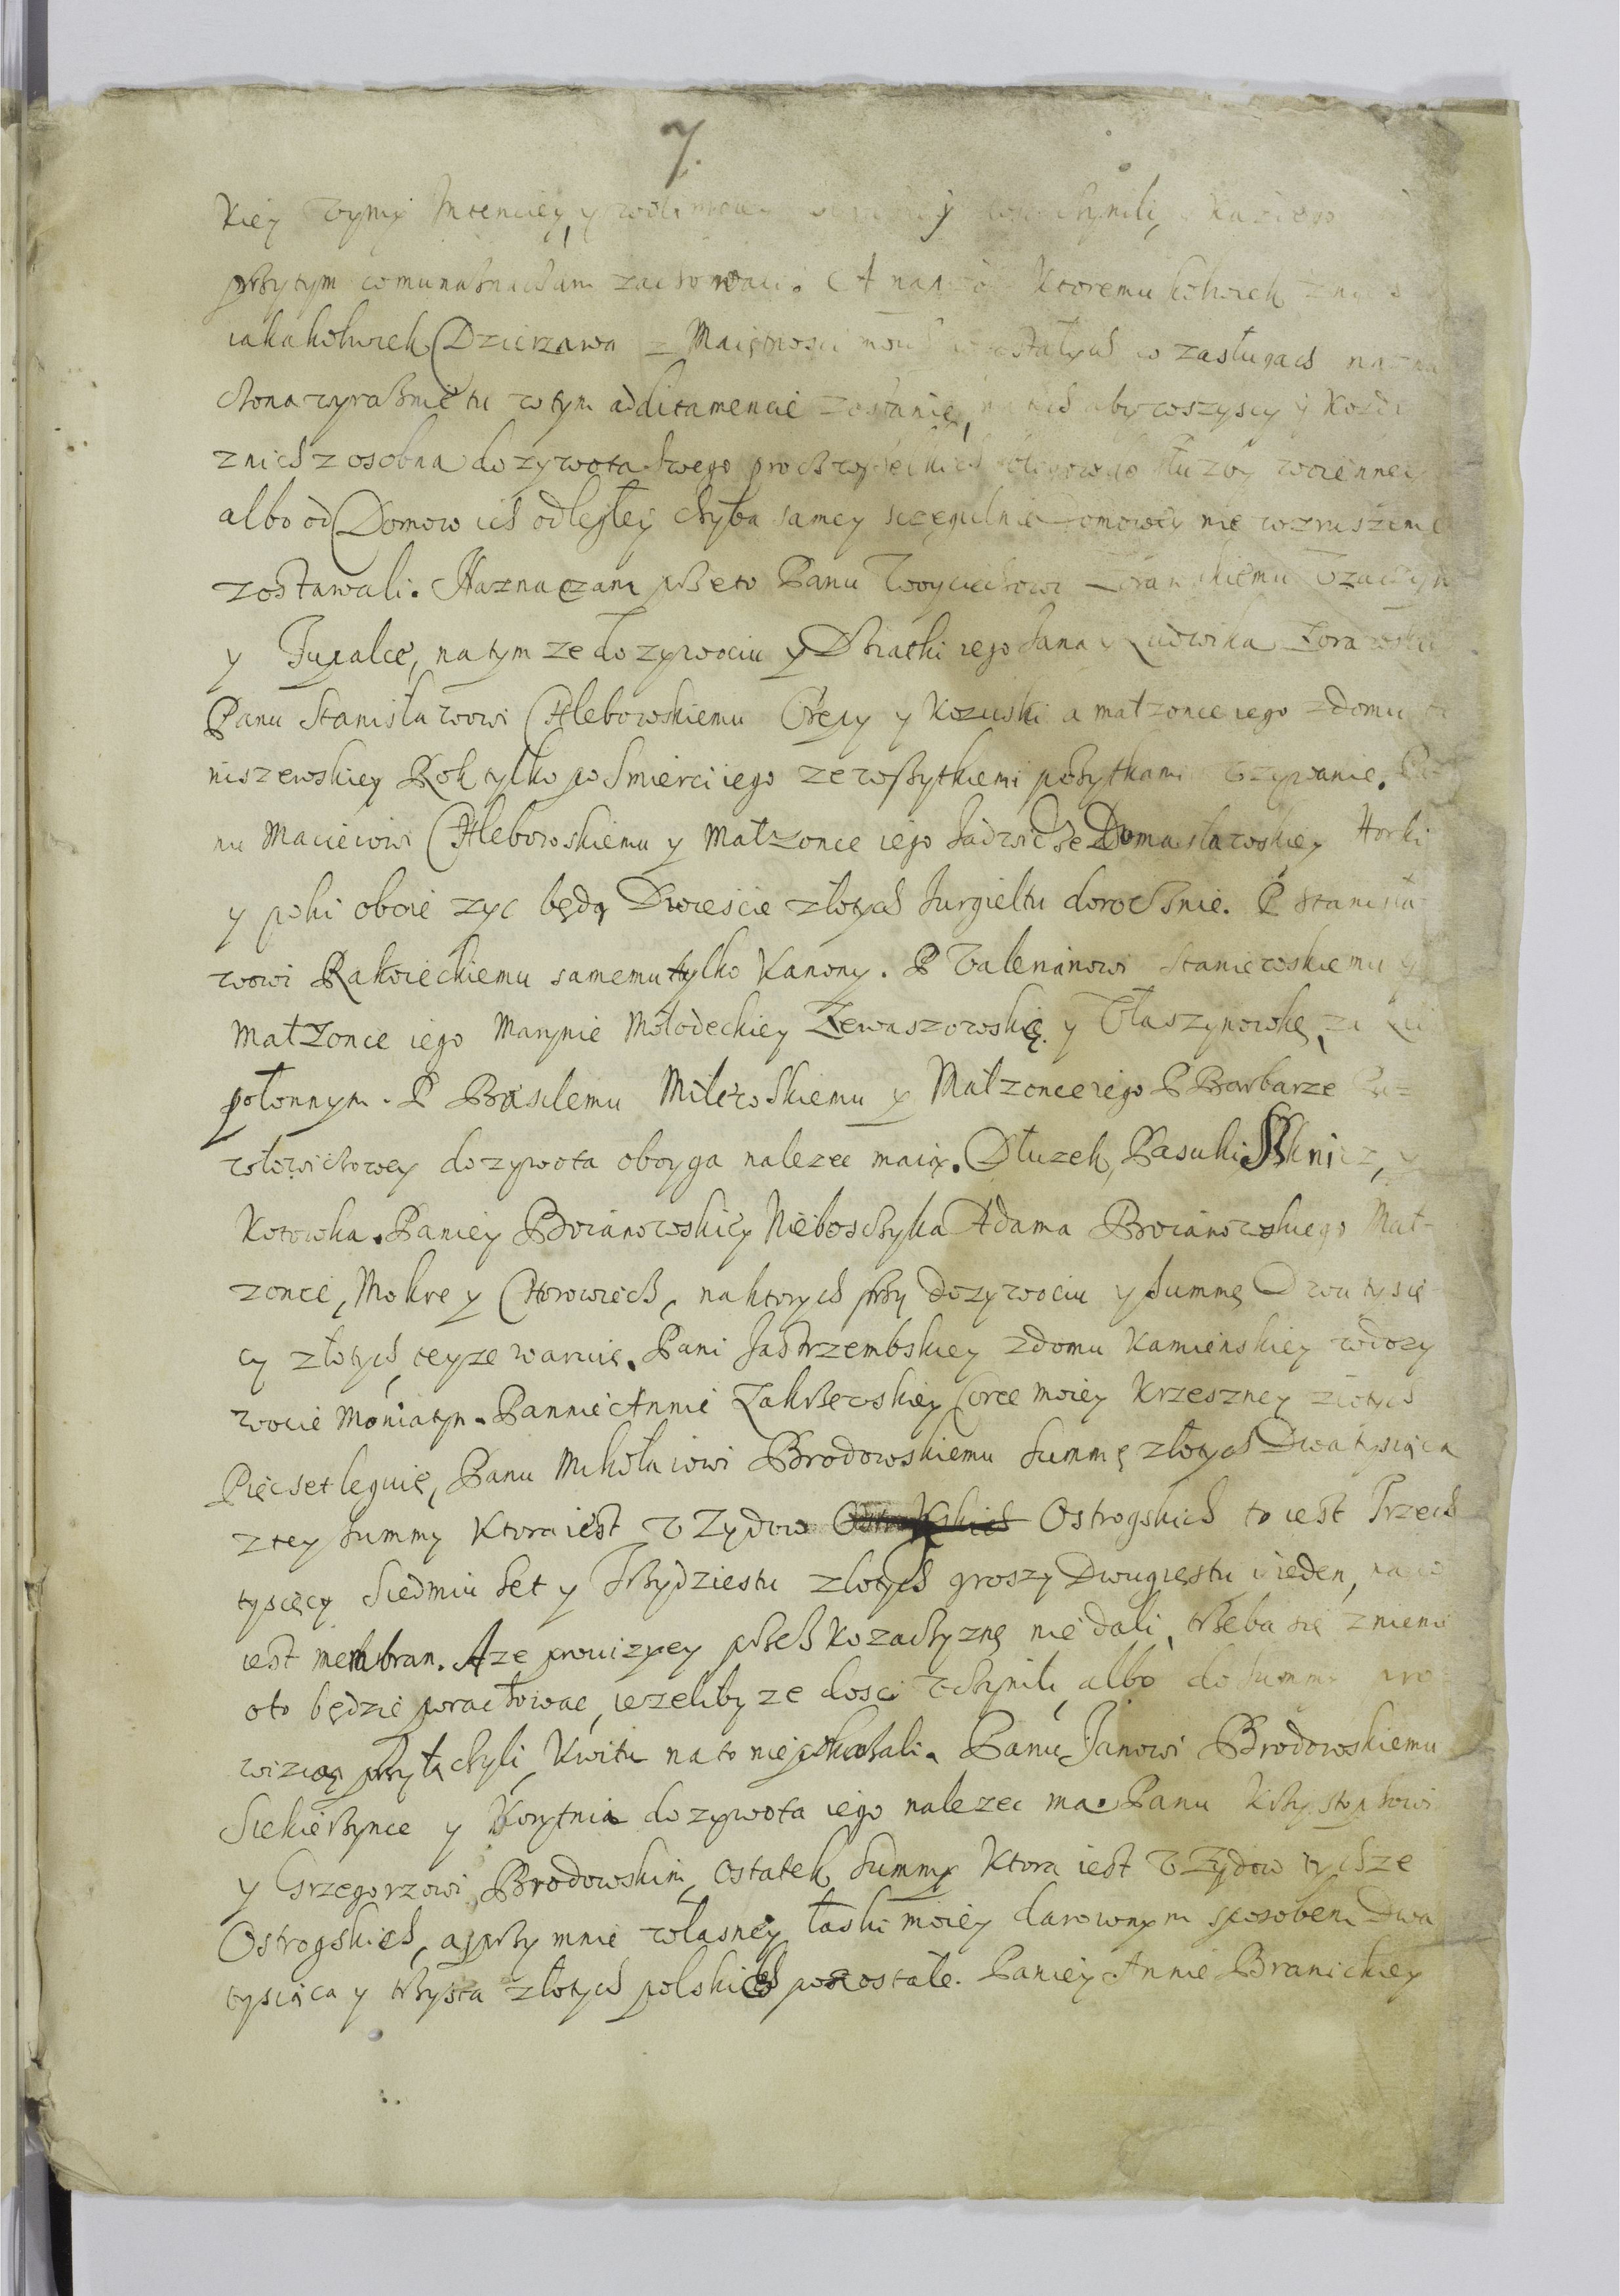 7.
kiey tymy Intenciey, y czynili, kazdego
przytym zachowali. A nadto ktoremu kolwiek z nich
iakakolwiek Dzierzawa z Maiętnosci moich w zasługach
czona wyraznie tu w tym additamencie zostanie, aby wszyscy y kozdy
z nich z osobna do zywota swego procz wszelkich słuzby woienney
albo od Domow ich odległey chyba samey sczegulnie Domowey nie wzruszenie
zostawali. Naznaczam przeto Panu Woyciechowi
y Tuxalce, na tym ze dozywociu y Dziatki iego Jana y Ludwika
Panu Stanisławowi Chlebowskiemu y Kozuski a małzonce iego z domu
niszewskiey Rok tylko po smierci iego ze wszytkiemi pozytkami vzywanie. Pa
nu Macieiowi Chlebowskiemu y Małzonce iego Jadwidze Domasławskiey Horki
y poki oboie zyc będą Dwieście złotych Jurgieltu dorocznie. P Stanisła
wowi Rakwieckiemu samemu tylko Kanony. P Valerianowi Staniewskiemu y
Małzonce iego Marynie Mołodeckiey Lewaszowskę y Vłaszynowkę, za
połonnym. P Basilemu Milewskiemu y Małzonce iego P Barbarze Pa=
włowichowey do zywota oboyga nalezec maią. Dłuzek, Pasuki y
Kotowka. Paniey Boianowskiey Nieboszczyka Adama Boianowskiego Mał-
zonce, Mokre y Chorowiech, na ktorych przy dozywociu y summę Dwu tysię
cy złotych teyze waruię. Pani Jastrzembskiey z domu Kamienskiey w dozy
wocie Moniatyn. Pannie Annie Zakrzewskiey Corce moiey Krzeszney złotych
Pięcset leguię, Panu Mikołaiowi Brodowskiemu Summę złotych Dwa tysiąca
z tey summy ktora iest v Zydow Ostrogskich to iest Trzech
tysięcy Siedmiu Set y Trzydziestu złotych groszy Dwugiestu ieden, na co
iest membran. Aze prouizyey przez kozaczyznę nie dali, trzeba się z niemi
oto będzie porachowac, iezeliby ze dosci vczynili, albo do summy pro
wizią przyłączyli, kwitu na to nie pokazali. Panu Janowi Brodowskiemu
Siekierzynce y Korytnia do zywota iego nalezec ma. Panu Krzysztophowi
y Grzegorzowi Brodowskim, ostatek summy ktora iest v Zydow tychze
Ostrogskich, a przy mnie własney łaski moiey darownym sposobem Dwa
tysiąca y trzysta złotych polskich pozostałe. Paniey Annie Branickiey